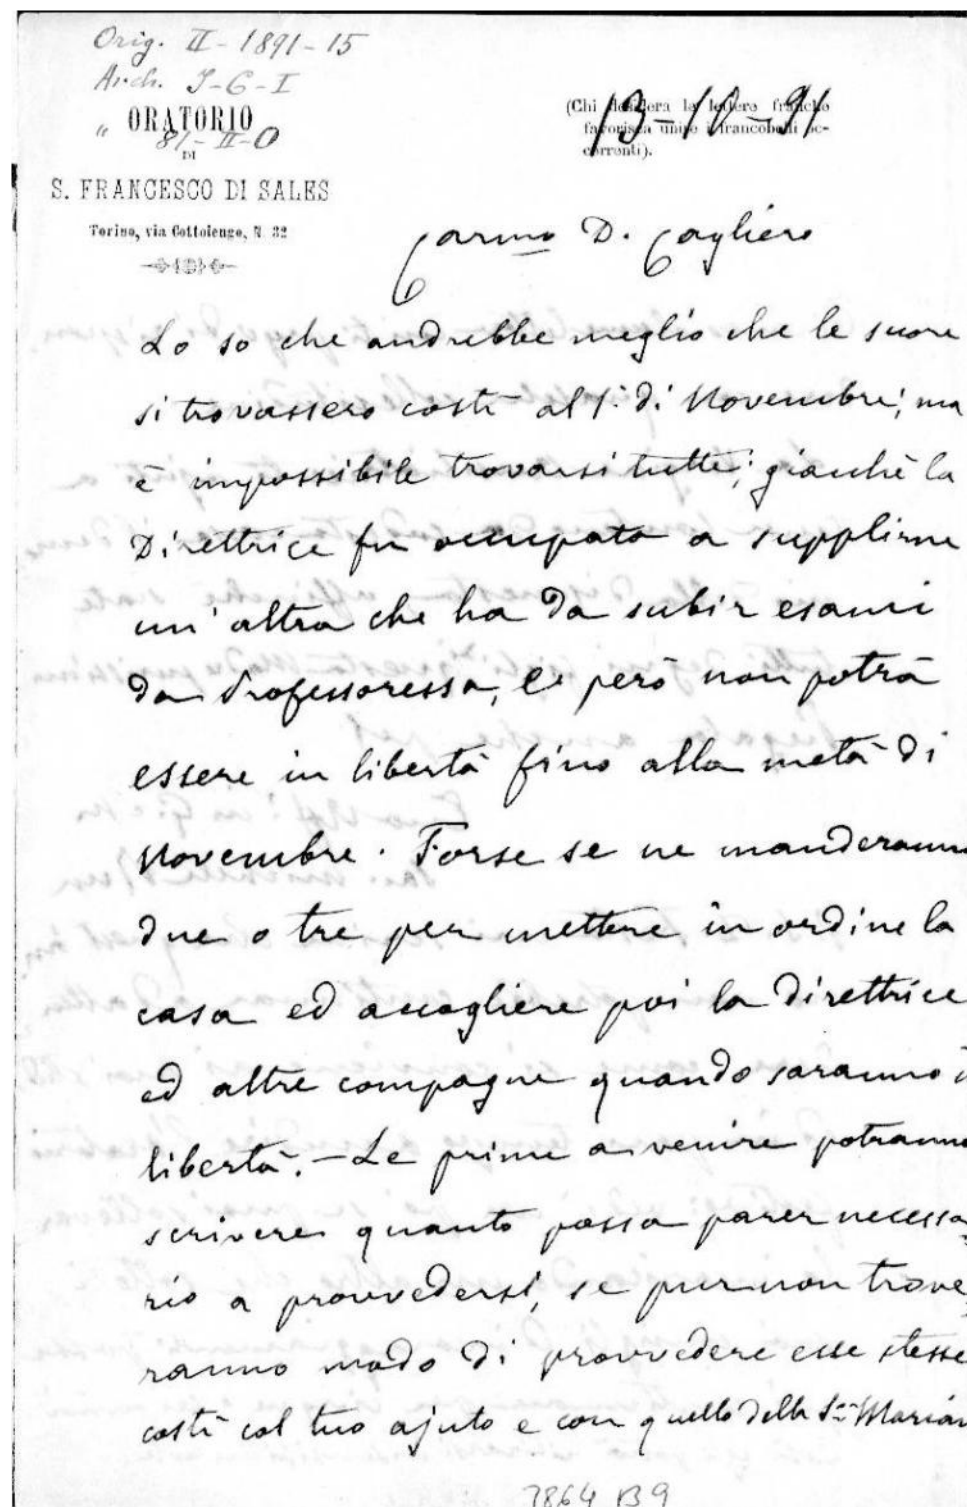 Orig. II - 1891 - 15
Arch. I - G - I
" 81 - II - O
ORATORIO
DI
S. FRANCESCO DI SALES
Torino, via Cottolengo, N. 32
(Chi desidera le lettere franche
favorisca unire i francobolli oc-
correnti).
13-10-91
Carmo D. Cagliero
Lo so che andrebbe meglio che le suore
si trovassero costì al 1° di Novembre; ma
è impossibile trovarsi tutte; giacchè la
Direttrice fu occupata a supplirne
un'altra che ha da subir esami
da Professoressa, e però non potrà
essere in libertà fino alla metà di
Novembre. Forse se ne manderanno
due o tre per mettere in ordine la
casa ed accogliere poi la Direttrice
ed altre compagne quando saranno i
libertà. - Le prime a venire potranno
scrivere quanto possa parer necessa
rio a provvedersi, se pur non trove
ranno modo di provvedere esse stesse
costì col tuo ajuto e con quello della Sra Marian
7864 B9